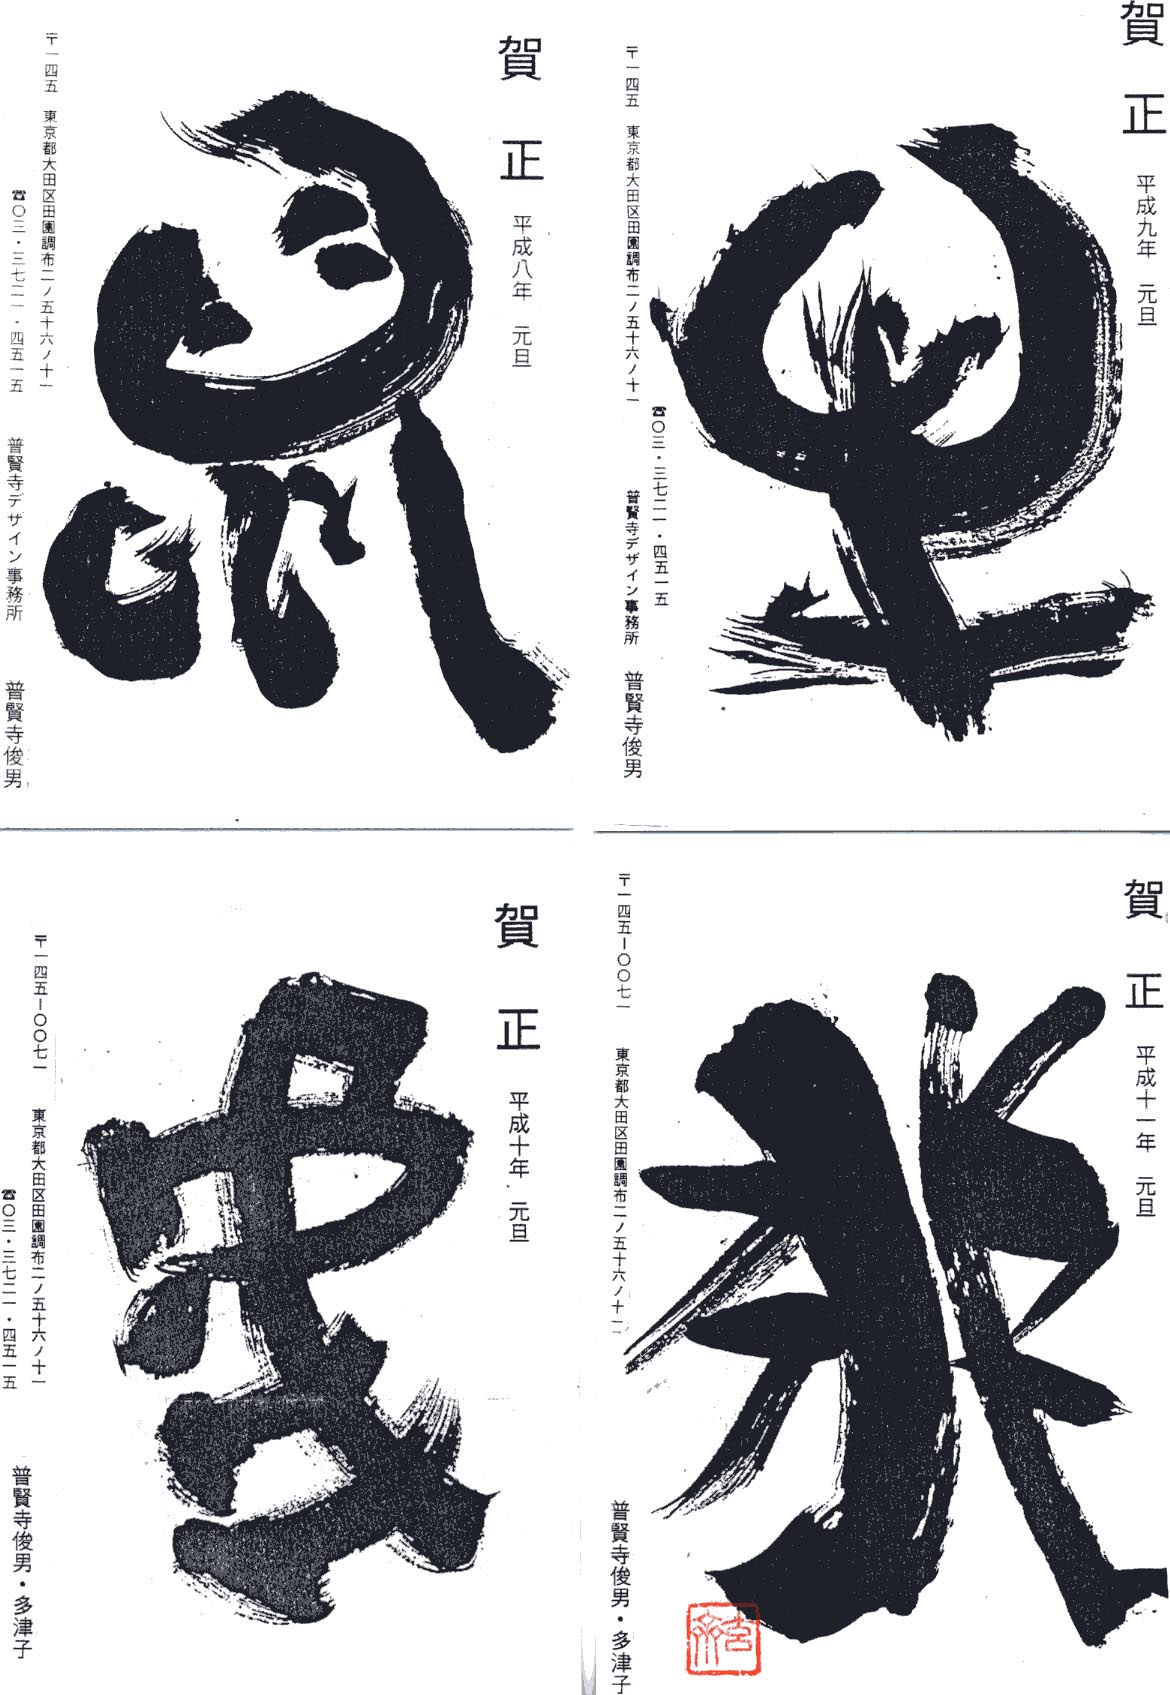 賀正
平成八年 元旦
〒一四五 東京都大田区田園調布二ノ五十六ノ十一
☎〇三・三七二一・四五一五
普賢寺デザイン事務所
普賢寺俊男
賀正
平成九年 元旦
〒一四五 東京都大田区田園調布二ノ五十六ノ十一
☎〇三・三七二一・四五一五
普賢寺デザイン事務所
普賢寺俊男
賀正
平成十年 元旦
〒一四五ー〇〇七一 東京都大田区田園調布二ノ五十六ノ十一
☎〇三・三七二一・四五一五
普賢寺俊男・多津子
賀正
平成十一年 元旦
〒一四五ー〇〇七一 東京都大田区田園調布二ノ五十六ノ十一
普賢寺俊男・多津子